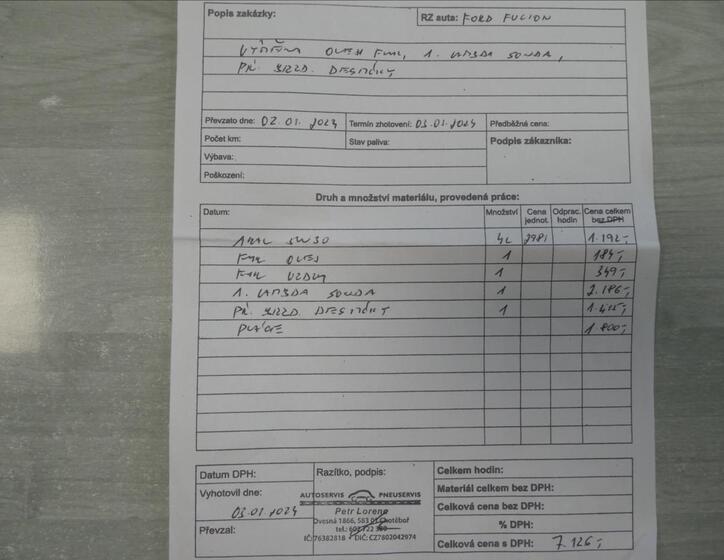 Popis zakázky: RZ auta: FORD FUCION
VÝMĚNA OLEJE FILTR, 1. LAMBDA SONDA,
PŘ. BRZD. DESTIČKY
Převzato dne: 02.01.2024 Termín zhotovení: 03.01.2024 Předběžná cena:
Počet km: Stav paliva: Podpis zákazníka:
Výbava:
Poškození:
Druh a množství materiálu, provedená práce:
Datum: Množství Cena jednot. Odprac. hodin Cena celkem bez DPH
5W30 4L 298,- 1.192,-
FILTR OLEJ 1 184,-
FILTR VZDUCH 1 349,-
1. LAMBDA SONDA 1 2.186,-
PŘ. BRZD. DESTIČKY 1 1.415,-
PRÁCE 1 800,-
Datum DPH: Razítko, podpis: Celkem hodin:
Vyhotovil dne: 03.01.2024 Materiál celkem bez DPH:
AUTOSERVIS PNEUSERVIS
Petr Lorenc Celková cena bez DPH:
Dvesná 1866, 583 01 Chotěboř
tel.: 602 722 % DPH:
Převzal: IČ:76382818 DIČ: CZ7802042974 Celková cena s DPH: 7.126,-